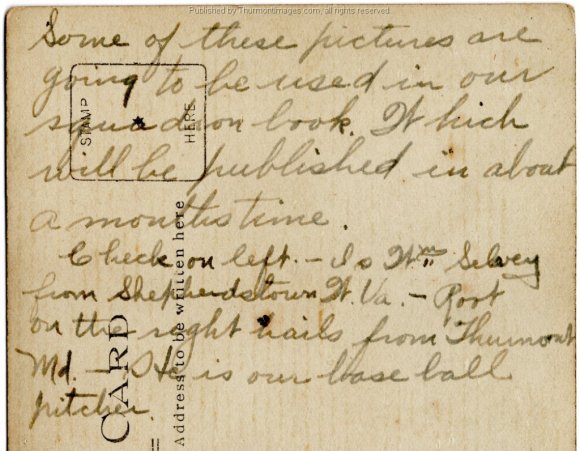 Published by Thurmontimages.com, all rights reserved
Some of these pictures are
going to be used in our
squadron book. Which
will be published in about
a months time.
Check on left. - Is Wm Selvey
from Shepherdstown W. Va. - Root
on the right hails from Thurmont
Md. - He is our base ball
pitcher.
STAMP
HERE
CARD
Address to be written here